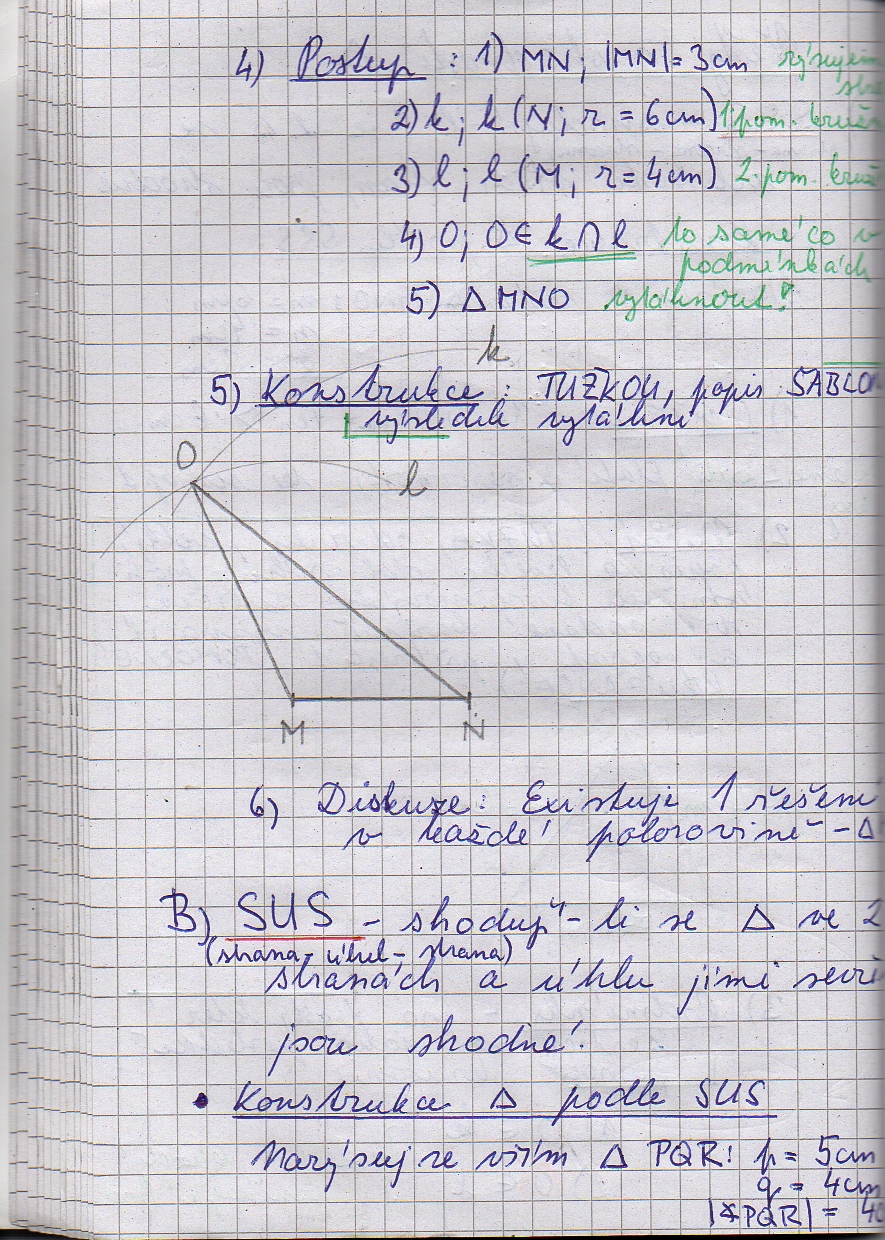 4) Postup : 1) MN; |MN| = 3cm rýsujem
2) k; k (N; r = 6cm) 1. pom. kruž
3) l; l (M; r = 4cm) 2. pom. kruž
4) O; O ∈ k ∩ l to samé co v
podmínkách
5) △ MNO vytáhnout!
k
5) Konstrukce : TUŽKOU, popis ŠABLON
výsledek vytáhni
O
l
M N
6) Diskuze: Existuje 1 řešení
v každé polorovině - △
B) SUS - shodují-li se △ ve 2
(strana - úhel - strana)
stranách a úhlu jimi sevř
jsou shodné.
• Konstrukce △ podle SUS
△ PQR: p = 5cm
q = 4cm
|∢PQR| = 40